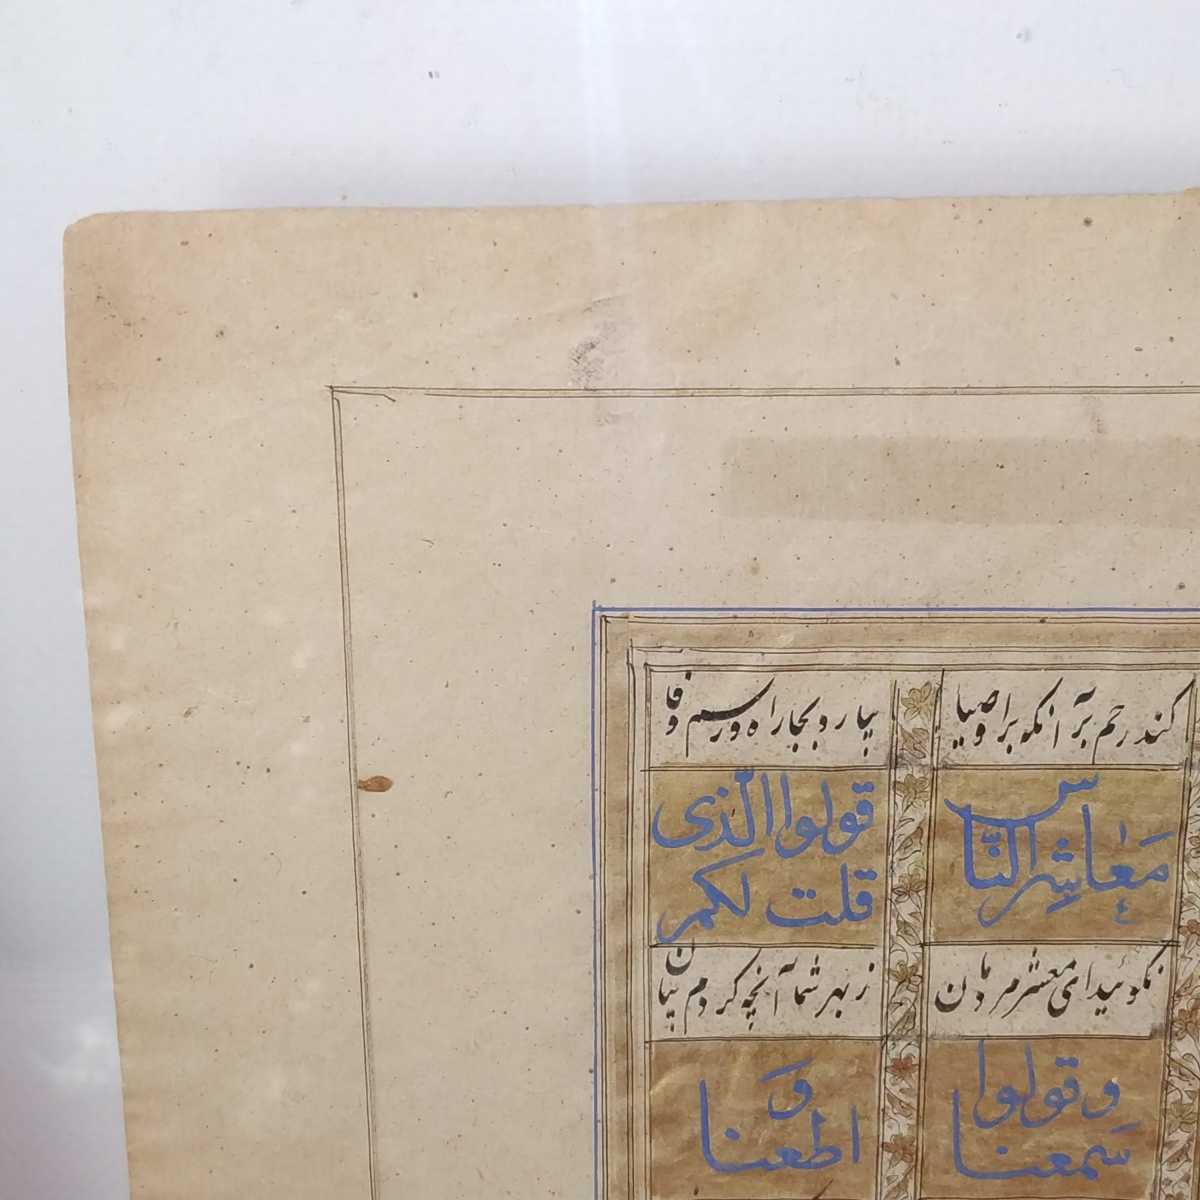 کند رحم بر آنکو بر اوصیا
بیارد بجا راه و رسم وفا
مَعٰاشِرَ النّاس
قولوا الّذی
قلت لکم
نکوئید ای معشر مردمان
ز بهر شما آنچه کردم بیان
و قولوا
سَمعنا
وَ
اطعنا